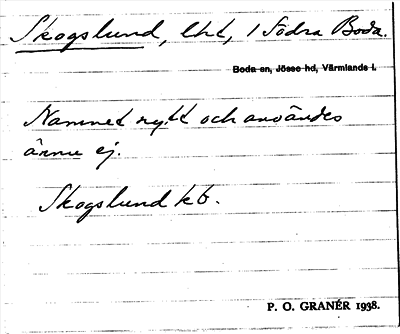 Skogslund, lht, 1 Södra Boda.
Boda sn, Jösse hd, Värmlands l.
Namnet nytt och användes
ännu ej.
Skogslund kb.
P. O. GRANÉR 1938.